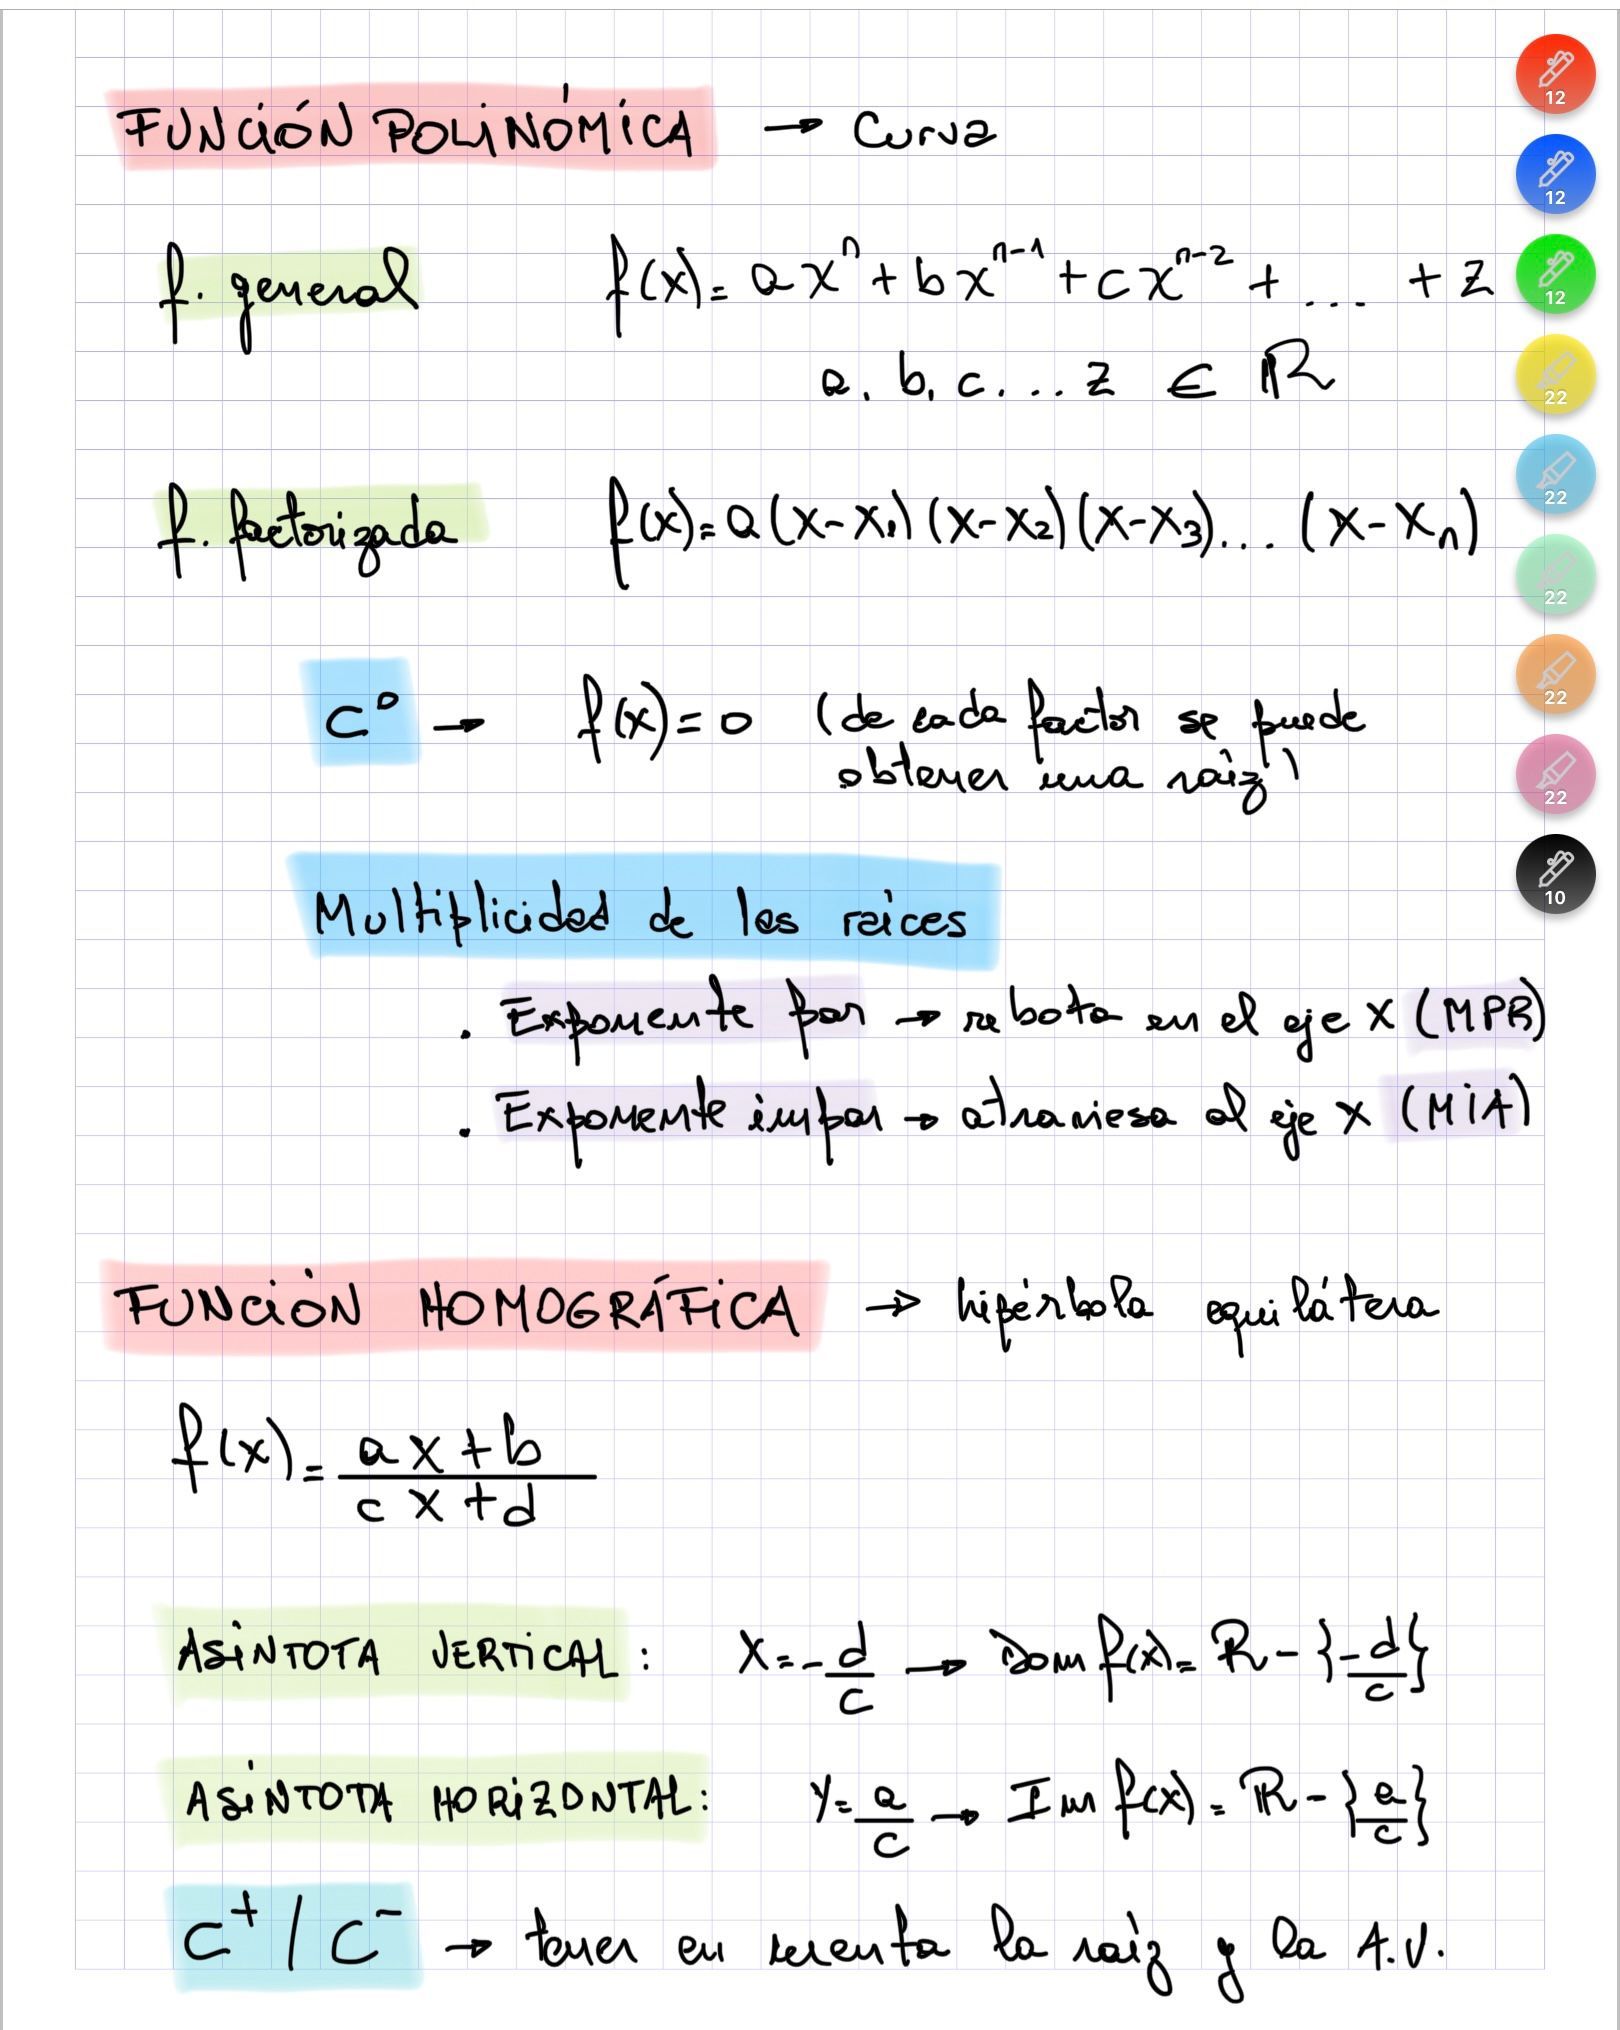 FUNCIÓN POLINÓMICA → Curva
f. general f(x) = a xⁿ + b xⁿ⁻¹ + c xⁿ⁻² + ... + z
a, b, c ... z ∈ ℝ
f. factorizada f(x) = a (x-x₁) (x-x₂) (x-x₃) ... (x-xₙ)
C⁰ → f(x) = 0 (de cada factor se puede
obtener una raíz)
Multiplicidad de las raíces
. Exponente par → rebota en el eje x (MPR)
. Exponente impar → atraviesa al eje x (MIA)
FUNCIÓN HOMOGRÁFICA → hipérbola equilátera
f(x) = ax+b
cx+d
ASÍNTOTA VERTICAL: x = -d/c → Dom f(x) = ℝ - {-d/c}
ASÍNTOTA HORIZONTAL: y = a/c → Im f(x) = ℝ - {a/c}
C⁺ / C⁻ → tener en cuenta la raíz y la A.V.
12
12
12
22
22
22
22
22
10